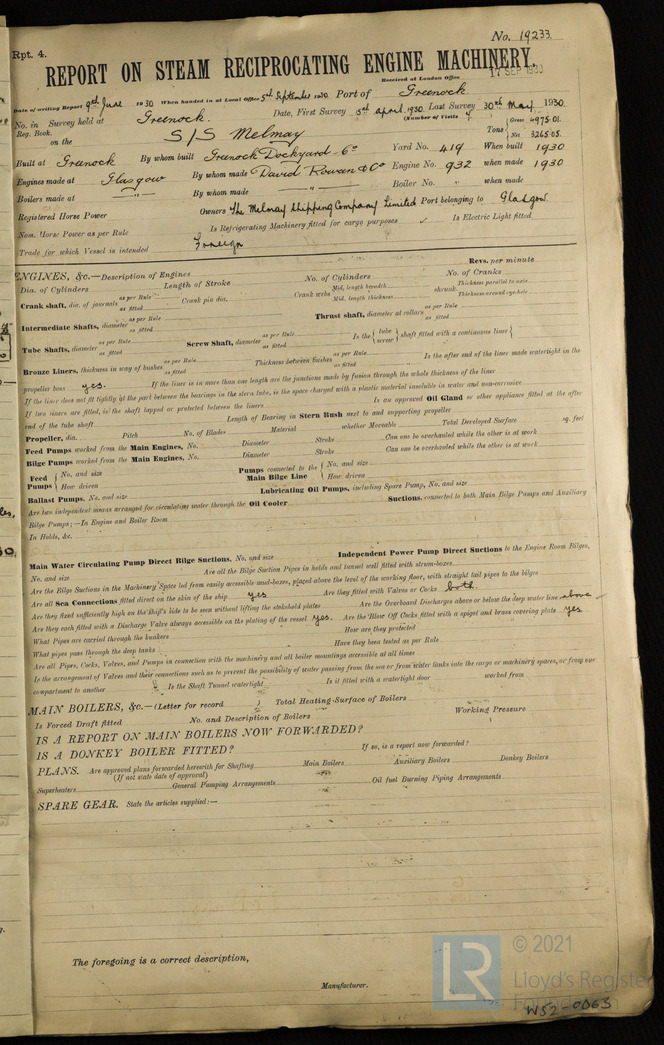 No. 19233
Rpt. 4.
REPORT ON STEAM RECIPROCATING ENGINE MACHINERY.
Received at London Office 17 SEP 1930
Date of writing Report 9th June 1930 When handed in at Local Office 5th September 1930 Port of Greenock
No. in Survey held at Greenock. Date, First Survey 5th April 1930 Last Survey 30th May 1930
Reg. Book. (Number of Visits
on the S/S Melmay Tons Gross 4975.01 Net 3265.05
Built at Greenock By whom built Greenock Dockyard Co Yard No. 419 When built 1930
Engines made at Glasgow By whom made David Rowan & Co Engine No. 932 when made 1930
Boilers made at " By whom made " Boiler No. " when made
Registered Horse Power Owners The Melmay Shipping Company Limited Port belonging to Glasgow.
Nom. Horse Power as per Rule Is Refrigerating Machinery fitted for cargo purposes Is Electric Light fitted
Trade for which Vessel is intended Foreign
ENGINES, &c.—Description of Engines Revs. per minute
Dia. of Cylinders Length of Stroke No. of Cylinders No. of Cranks
Crank shaft, dia. of journals as per Rule as fitted Crank pin dia. Crank webs Mid. length breadth Mid. length thickness shrunk Thickness parallel to axis Thickness around eye-hole
Intermediate Shafts, diameter as per Rule as fitted Thrust shaft, diameter at collars as per Rule as fitted
Tube Shafts, diameter as per Rule as fitted Screw Shaft, diameter as per Rule as fitted Is the { tube screw } shaft fitted with a continuous liner {
Bronze Liners, thickness in way of bushes as per Rule as fitted Thickness between bushes as per Rule as fitted Is the after end of the liner made watertight in the
propeller boss yes. If the liner is in more than one length are the junctions made by fusion through the whole thickness of the liner
If the liner does not fit tightly at the part between the bearings in the stern tube, is the space charged with a plastic material insoluble in water and non-corrosive
If two liners are fitted, is the shaft lapped or protected between the liners Is an approved Oil Gland or other appliance fitted at the after
end of the tube shaft Length of Bearing in Stern Bush next to and supporting propeller
Propeller, dia. Pitch No. of Blades Material whether Moveable Total Developed Surface sq. feet
Feed Pumps worked from the Main Engines, No. Diameter Stroke Can one be overhauled while the other is at work
Bilge Pumps worked from the Main Engines, No. Diameter Stroke Can one be overhauled while the other is at work
Feed Pumps { No. and size How driven Pumps connected to the Main Bilge Line { No. and size How driven
Ballast Pumps, No. and size Lubricating Oil Pumps, including Spare Pump, No. and size
Are two independent means arranged for circulating water through the Oil Cooler Suctions, connected to both Main Bilge Pumps and Auxiliary
Bilge Pumps;—In Engine and Boiler Room
In Holds, &c.
Main Water Circulating Pump Direct Bilge Suctions, No. and size Independent Power Pump Direct Suctions to the Engine Room Bilges,
No. and size Are all the Bilge Suction Pipes in holds and tunnel well fitted with strum-boxes
Are the Bilge Suctions in the Machinery Space led from easily accessible mud-boxes, placed above the level of the working floor, with straight tail pipes to the bilges
Are all Sea Connections fitted direct on the skin of the ship yes Are they fitted with Valves or Cocks both
Are they fixed sufficiently high on the ship's side to be seen without lifting the stokehold plates Are the Overboard Discharges above or below the deep water line above
Are they each fitted with a Discharge Valve always accessible on the plating of the vessel yes. Are the Blow Off Cocks fitted with a spigot and brass covering plate yes
What Pipes are carried through the bunkers How are they protected
What pipes pass through the deep tanks Have they been tested as per Rule
Are all Pipes, Cocks, Valves, and Pumps in connection with the machinery and all boiler mountings accessible at all times
Is the arrangement of Valves and their connections such as to prevent the possibility of water passing from the sea or from water tanks into the cargo or machinery spaces, or from one
compartment to another Is the Shaft Tunnel watertight Is it fitted with a watertight door worked from
MAIN BOILERS, &c.—(Letter for record ) Total Heating Surface of Boilers
Is Forced Draft fitted No. and Description of Boilers Working Pressure
IS A REPORT ON MAIN BOILERS NOW FORWARDED?
IS A DONKEY BOILER FITTED? If so, is a report now forwarded?
PLANS. Are approved plans forwarded herewith for Shafting Main Boilers Auxiliary Boilers Donkey Boilers
(If not state date of approval)
Superheaters General Pumping Arrangements Oil fuel Burning Piping Arrangements
SPARE GEAR. State the articles supplied:—
The foregoing is a correct description,
Manufacturer.
LR © 2021
Lloyd's Register
Foundation
W52-0063